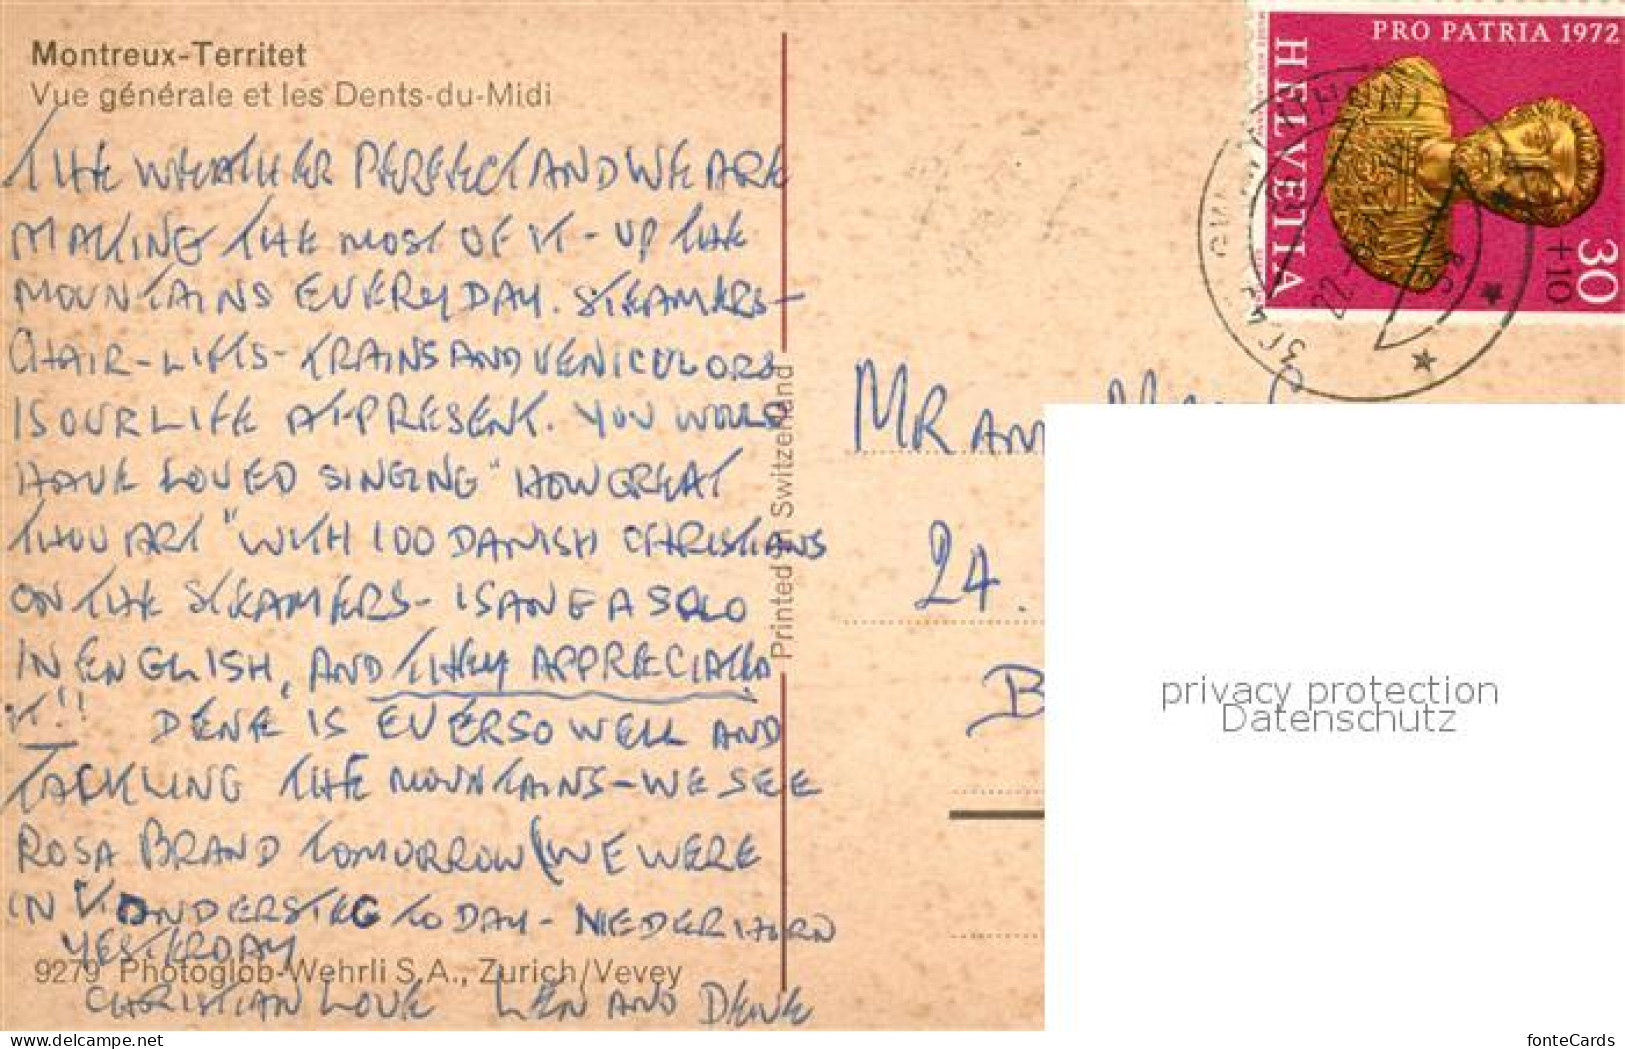 Montreux-Territet
Vue générale et les Dents-du-Midi
THE WEATHER PERFECT AND WE ARE
MAKING THE MOST OF IT - UP THE
MOUNTAINS EVERY DAY. STEAMERS-
CHAIR-LIFTS-TRAINS AND VENICULORS
IS OUR LIFE AT PRESENT. YOU WOULD
HAVE LOVED SINGING "HOW GREAT
THOU ART" WITH 100 DANISH CHRISTIANS
ON THE STEAMERS- I SANG A SOLO
IN ENGLISH, AND THEY APPRECIATED
IT!! DENE IS EVER SO WELL AND
TACKLING THE MOUNTAINS-WE SEE
ROSA BRAND TOMORROW (WE WERE
IN KANDERSTEG TODAY- NIEDERHORN
YESTERDAY
9279 Photoglob-Wehrli S.A., Zurich/Vevey
CHRISTIAN LOVE LEN AND DENE
Printed in Switzerland
PRO PATRIA 1972
HELVETIA
30
+10
(THUN)
MR AND
24.
B
privacy protection
Datenschutz
www.delcampe.net
fonteCards